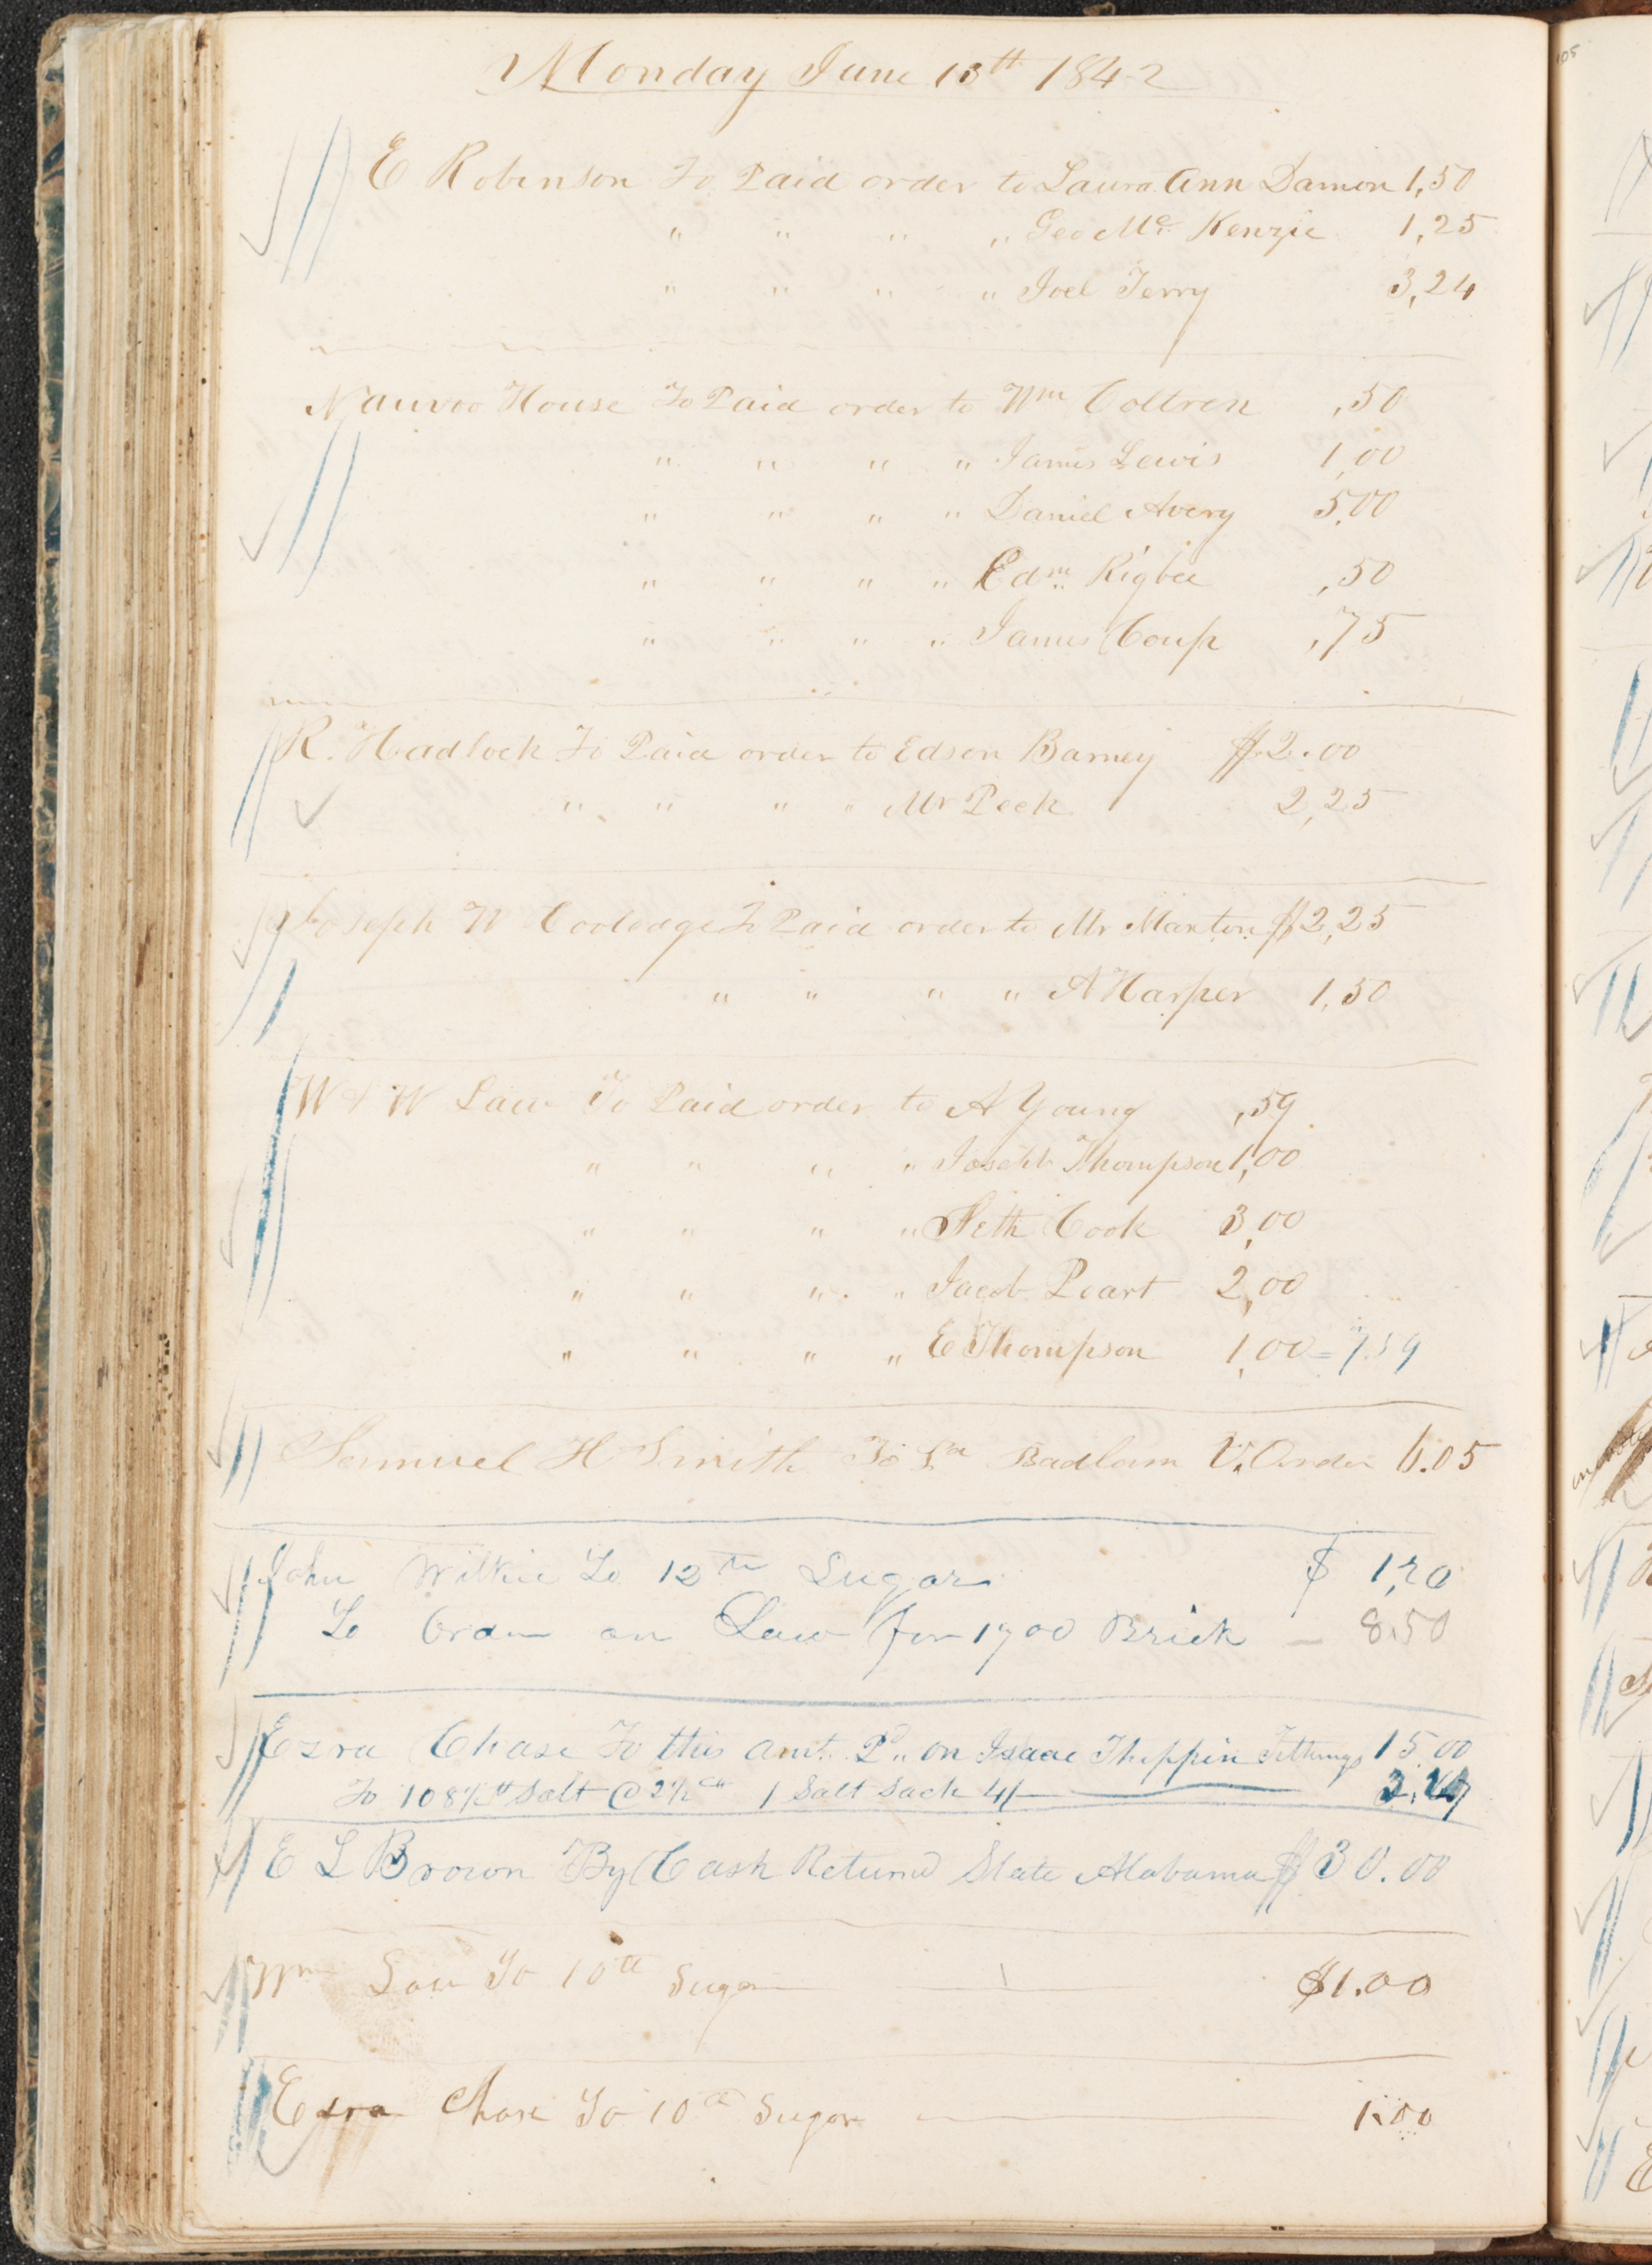 Monday June 13th 1842
E Robinson To Paid order to Laura Ann Damon 1,50
" " " " Geo Mc Kenzie 1,25
" " " " Joel Terry 3,24
Nauvoo House To Paid order to Wm Coltren ,50
" " " " James Lewis 1,00
" " " " Daniel Avery 5,00
" " " " Edm Rigbee ,50
" " " " James Coup ,75
R. Hadlock To Paid order to Edson Barney $2.00
" " " " Mr Peck 2,25
Joseph W Coolodge To Paid order to Mr Maxton $2,25
" " " " A Harper 1,50
W & W Law To Paid order to A Young ,59
" " " " Joseph Thompson 1,00
" " " " Seth Cook 3,00
" " " " Jacob Peart 2,00
" " " " E Thompson 1,00 = 7.59
Samuel H Smith To Badlam V. Order 6.05
John Wilkie To 12 lb Sugar $ 1,20
To Order on Law for 1700 Brick – 8.50
Ezra Chase To this amt. Pd on Isaac Theppin Tithings 15.00
To 108½ lb Salt @ 2½ cts 1 Salt Sack 4/
E L Brown By Cash Returnd State Alabama $30.00
Wm Law To 10 lb Sugar $1.00
Ezra Chase To 10 lb Sugar 1.00
105